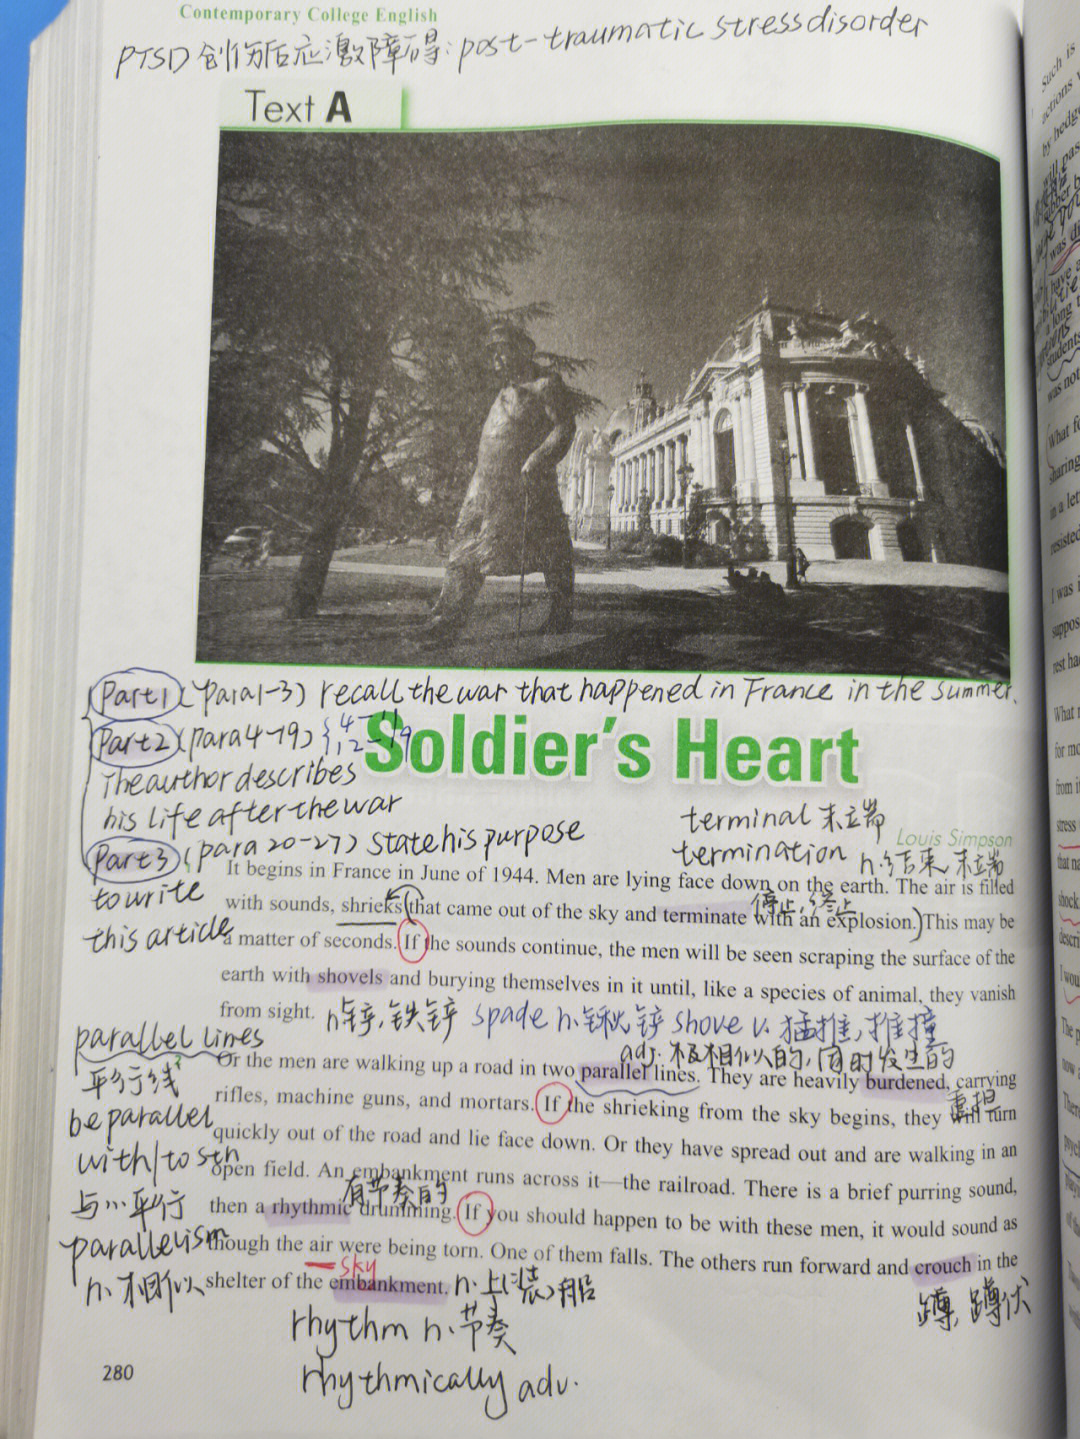 Contemporary College English
PTSD 创伤后应激障碍: post-traumatic stress disorder
Text A
Part1 (para1-3) recall the war that happened in France in the summer.
Part2 (para4-19) {4-11 12-19
The author describes
his life after the war
Part3 (para 20-27) state his purpose
to write
this article
Soldier's Heart
terminal 末端
Louis Simpson
termination n.结束,末端
It begins in France in June of 1944. Men are lying face down on the earth. The air is filled
停止,终止
with sounds, shrieks that came out of the sky and terminate with an explosion. This may be
a matter of seconds. If the sounds continue, the men will be seen scraping the surface of the
earth with shovels and burying themselves in it until, like a species of animal, they vanish
from sight.
n.铲,铁铲 spade n.锹,铲 shove v.猛推,推撞
parallel lines
平行线
be parallel
with/to sth
与…平行
parallelism
n.相似
adj.极相似的,同时发生的
Or the men are walking up a road in two parallel lines. They are heavily burdened, carrying
重担
rifles, machine guns, and mortars. If the shrieking from the sky begins, they will turn
quickly out of the road and lie face down. Or they have spread out and are walking in an
open field. An embankment runs across it—the railroad. There is a brief purring sound,
有节奏的
then a rhythmic drumming. If you should happen to be with these men, it would sound as
though the air were being torn. One of them falls. The others run forward and crouch in the
sky
shelter of the embankment.
蹲,蹲伏
rhythm n.节奏
rhythmically adv.
280
such is
actions
by hedge
was not
sharing
in a let
resisted
I was
suppos
rest ha
What
for mo
from i
stress
that na
shock
descri
I wou
The p
now a